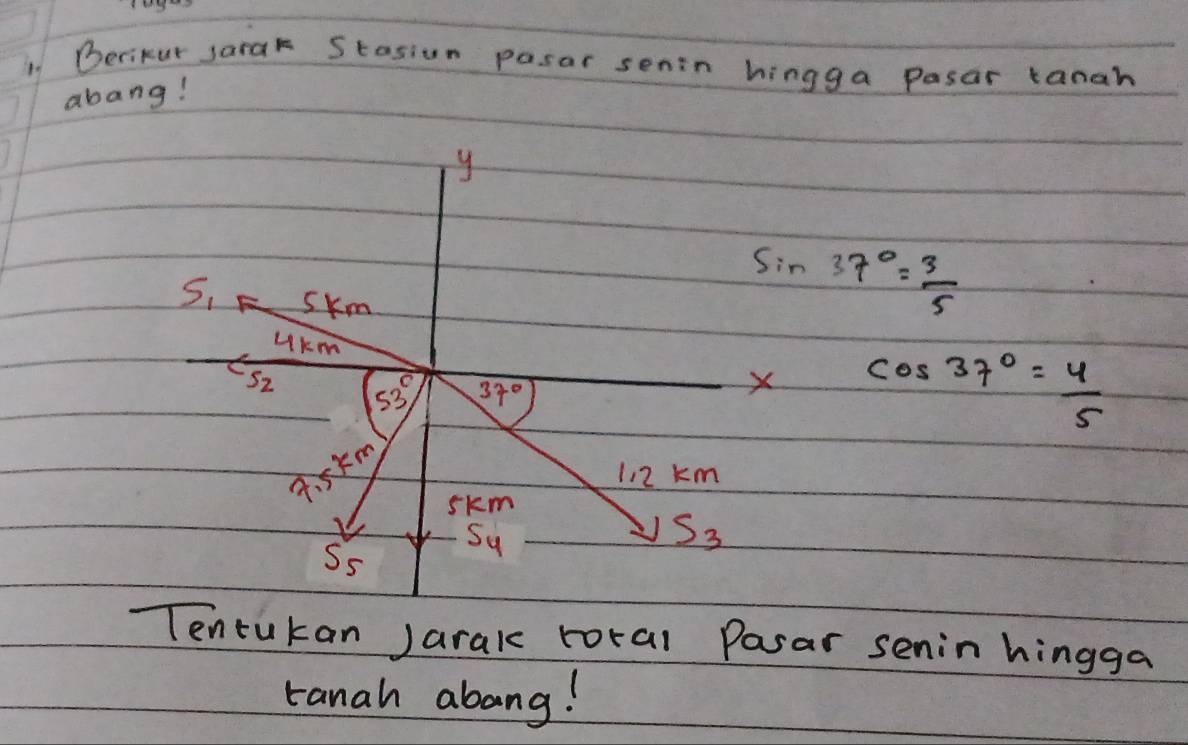 Tugas
1. Berikut jarak Stasiun pasar senin hingga pasar tanah
abang!
y
Sin 37° = 3/5
S1 5 km
4 km
S2
53°
37°
x
cos 37° = 4/5
7.5 km
1,2 km
5 km
S4
S3
S5
Tentukan Jarak total Pasar senin hingga
tanah abang!